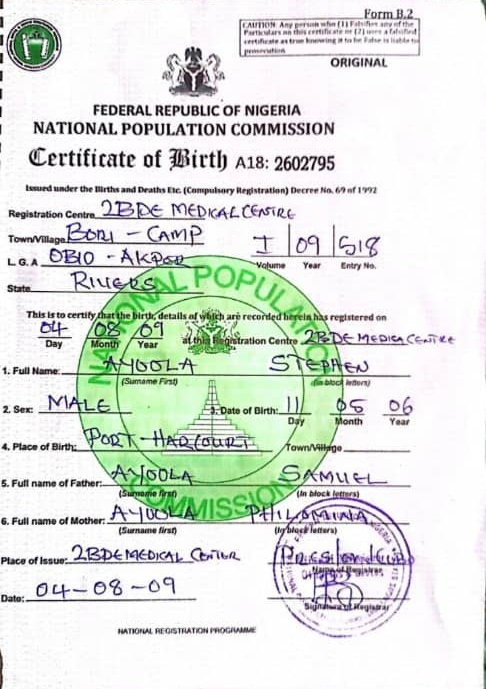 Form B.2
CAUTION: Any person who (1) Falsifies any of the
Particulars on this certificate or (2) uses a falsified
certificate as true knowing it to be False is liable to
prosecution
ORIGINAL
FEDERAL REPUBLIC OF NIGERIA
NATIONAL POPULATION COMMISSION
Certificate of Birth A18: 2602795
Issued under the Births and Deaths Etc. (Compulsory Registration) Decree No. 69 of 1992
Registration Centre 2BDE MEDICAL CENTRE
Town/Village BORI - CAMP
I 09 518
L. G. A OBIO - AKPOR
Volume Year Entry No.
State RIVERS
This is to certify that the birth, details of which are recorded herein has registered on
04 08 09 at this Registration Centre 2BDE MEDICA CENTRE
Day Month Year
1. Full Name: AYOOLA STEPHEN
(Surname First) (in block letters)
2. Sex: MALE 3. Date of Birth: 11 05 06
Day Month Year
4. Place of Birth: PORT-HARCOURT Town/Village
5. Full name of Father: AYOOLA SAMUEL
(Surname first) (In block letters)
6. Full name of Mother: AYOOLA PHILOMINA
(Surname first) (In block letters)
Place of Issue: 2BDE MEDICAL CENTER
Name of Registrar
Date: 04-08-09
Signature of Registrar
NATIONAL REGISTRATION PROGRAMME
NATIONAL POPULATION
COMMISSION